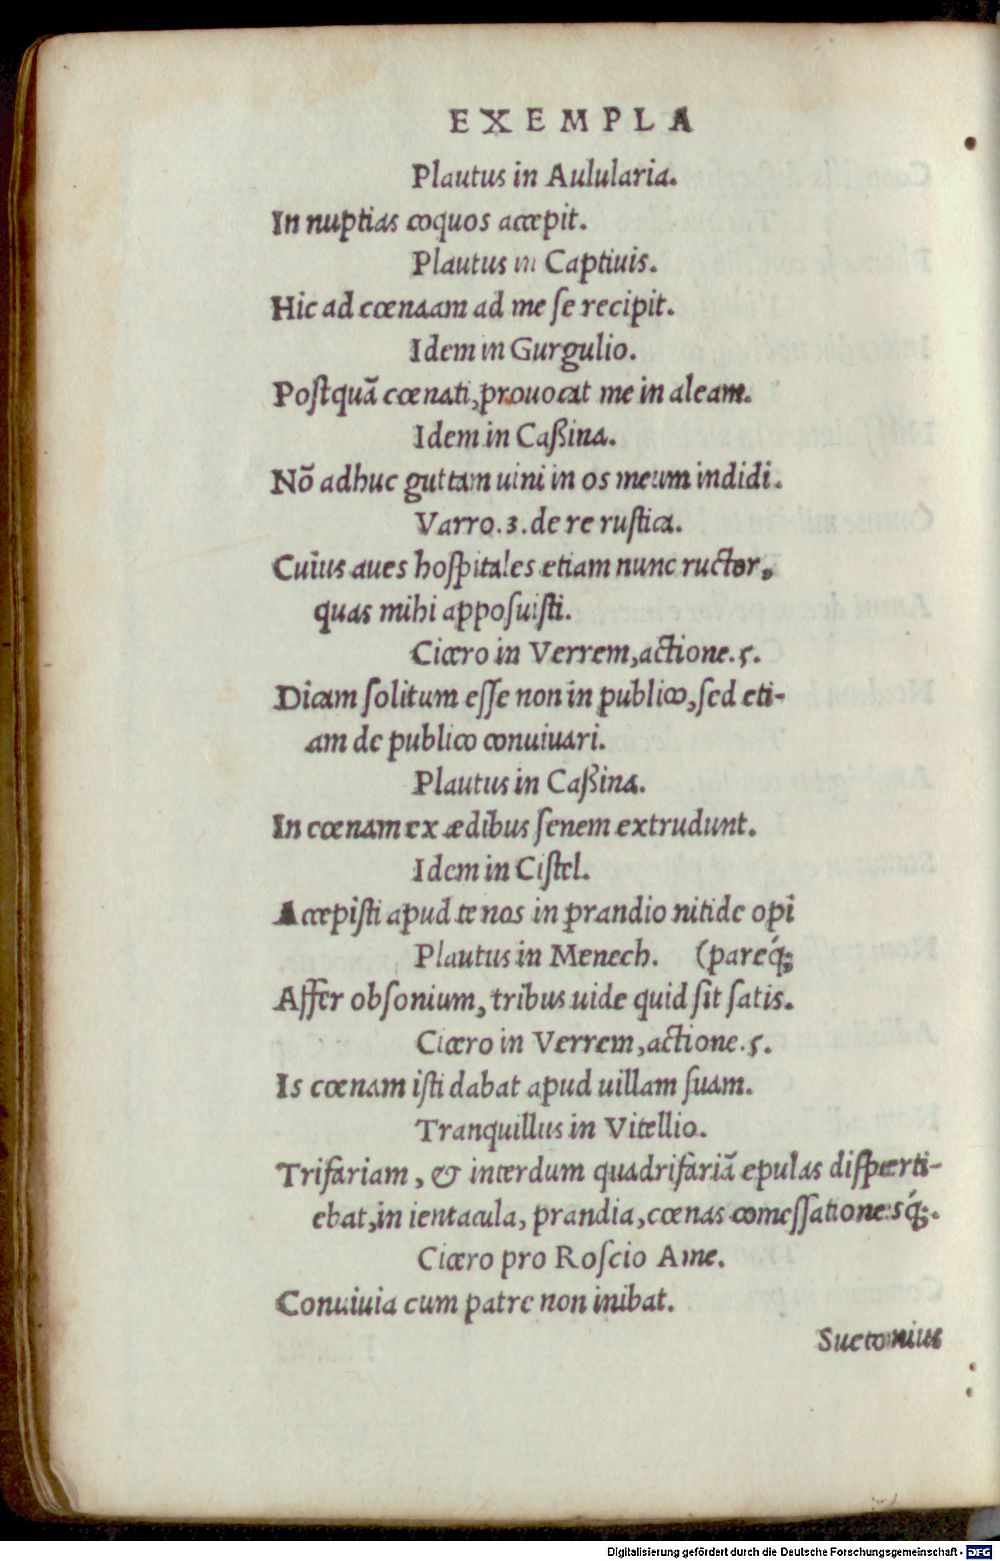 EXEMPLA
Plautus in Aulularia.
In nuptias coquos accepit.
Plautus in Captiuis.
Hic ad cœnaam ad me ſe recipit.
Idem in Gurgulio.
Poſtquã cœnati, prouocat me in aleam.
Idem in Caßina.
Nõ adhuc guttam uini in os meum indidi.
Varro. 3. de re ruſtica.
Cuius aues hoſpitales etiam nunc ructor,
quas mihi appoſuiſti.
Cicero in Verrem, actione. 5.
Dicam ſolitum eſſe non in publico, ſed eti-
am de publico conuiuari.
Plautus in Caßina.
In cœnam ex ædibus ſenem extrudunt.
Idem in Ciſtel.
Accepiſti apud te nos in prandio nitide opi
Plautus in Menech. (pareq́;
Affer obſonium, tribus uide quid ſit ſatis.
Cicero in Verrem, actione. 5.
Is cœnam iſti dabat apud uillam ſuam.
Tranquillus in Vitellio.
Trifariam, & interdum quadrifariã epulas diſperti-
ebat, in ientacula, prandia, cœnas comeſſationesq́;.
Cicero pro Roſcio Ame.
Conuiuia cum patre non inibat.
Suetonius
Digitalisierung gefördert durch die Deutsche Forschungsgemeinschaft - DFG